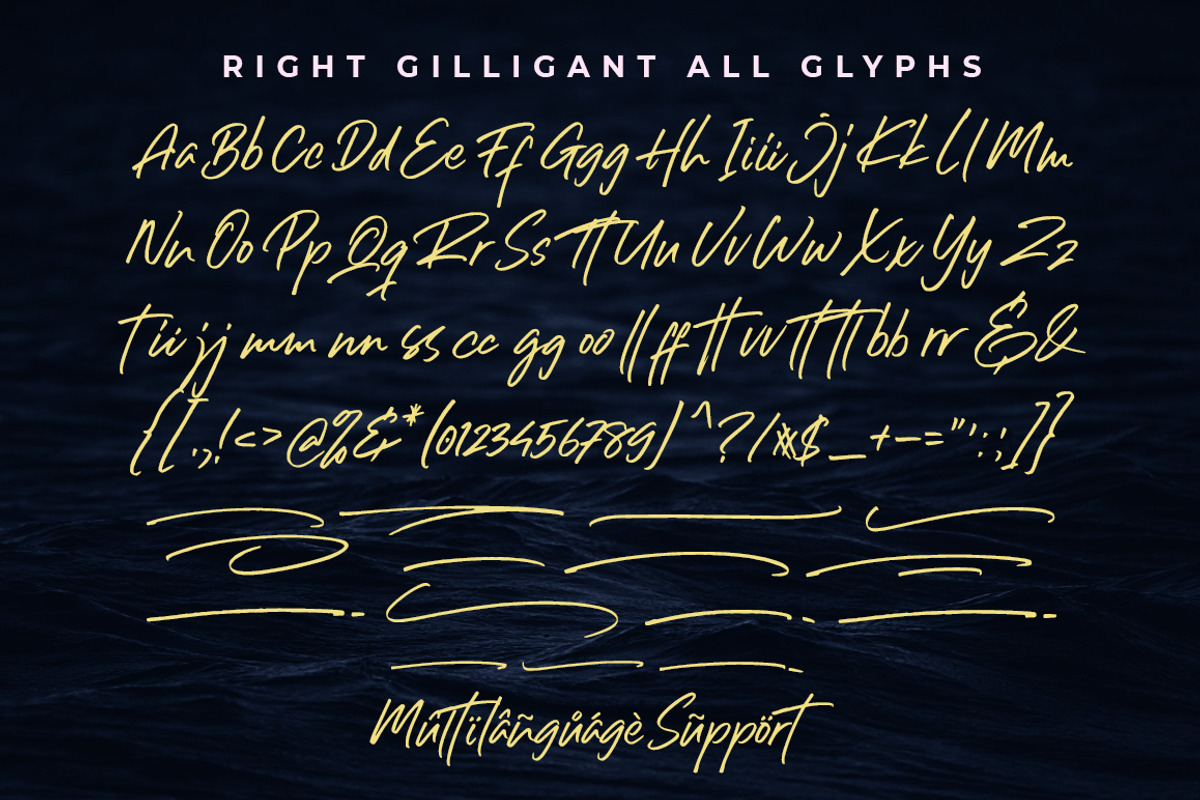 RIGHT GILLIGANT ALL GLYPHS
Aa Bb Cc Dd Ee Ff Ggg Hh Iiii Jj Kk Ll Mm
Nn Oo Pp Qq Rr Ss Tt Uu Vv Ww Xx Yy Zz
T ii jj mm nn ss cc gg oo ll ff tt vv Tt Tt bb rr & &
{ [ . , ! < > @ % & * ( 0123456789 ) ^ ? / # $ _ + - = " ' : ; ] }
Mûttïlâñgůágè Sũppört